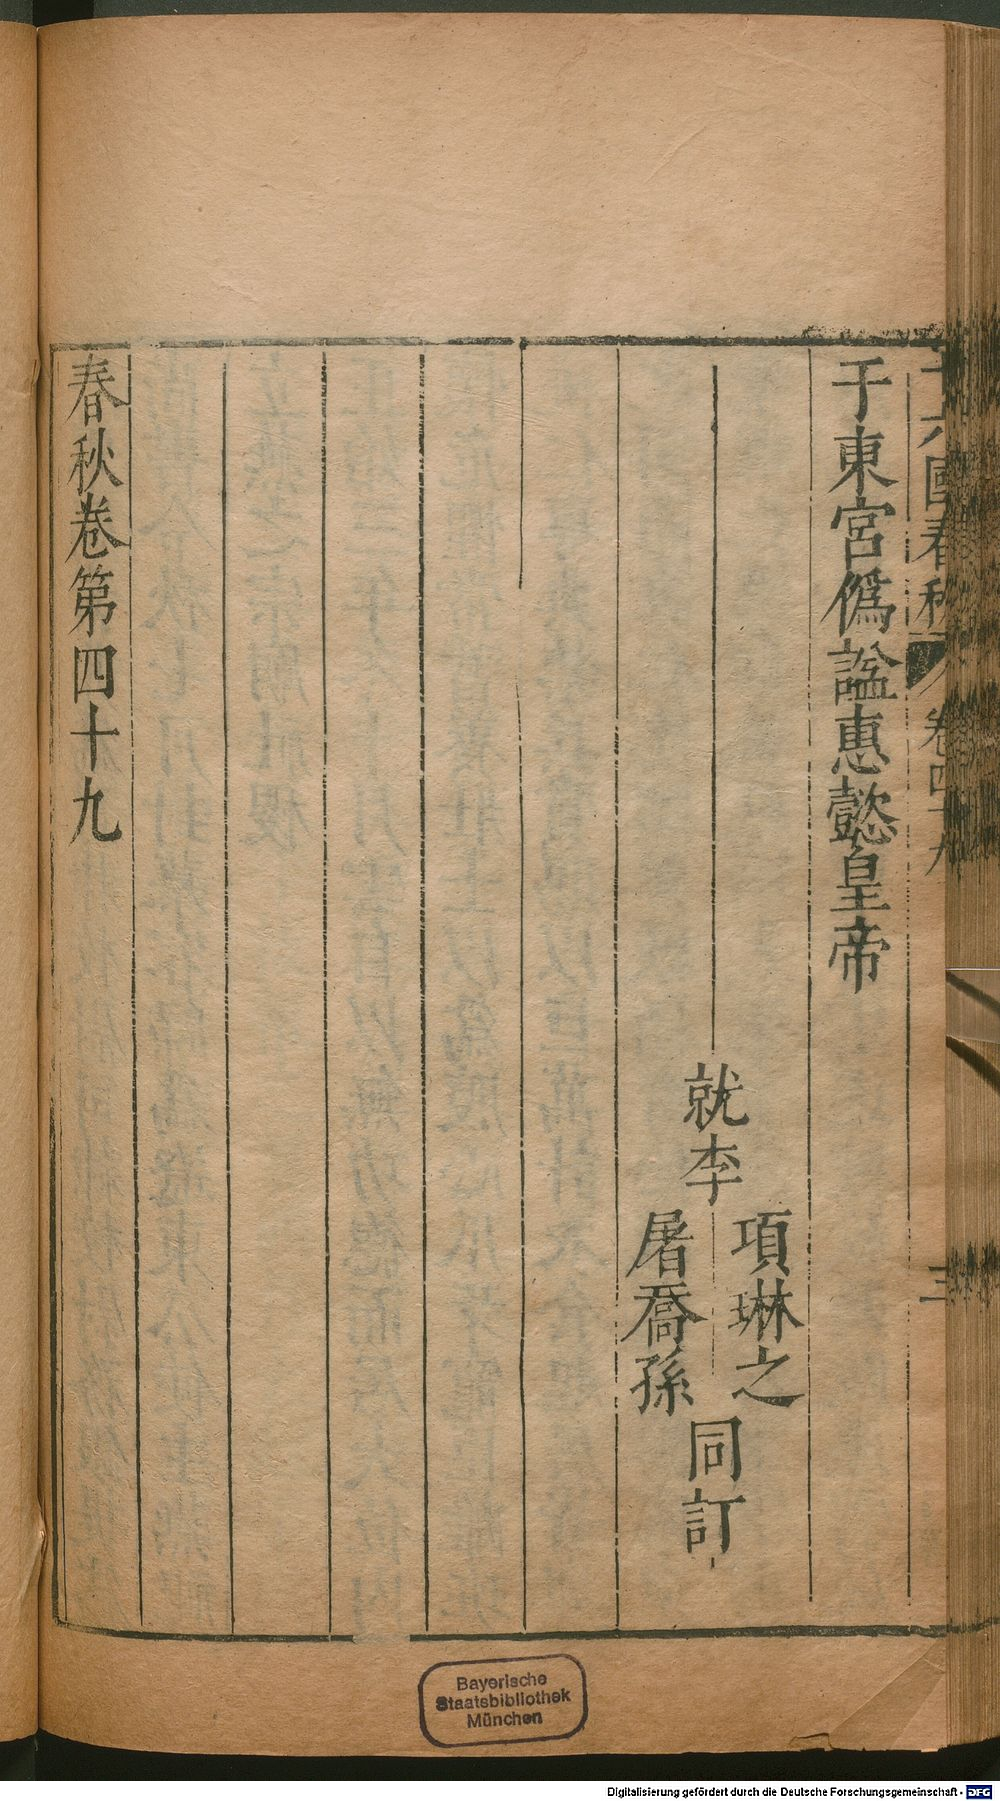 十六國春秋 卷四十九 三
于東宮僞諡惠懿皇帝
就李
項琳之
屠喬孫
同訂
春秋卷第四十九
Bayerische
Staatsbibliothek
München
Digitalisierung gefördert durch die Deutsche Forschungsgemeinschaft - DFG